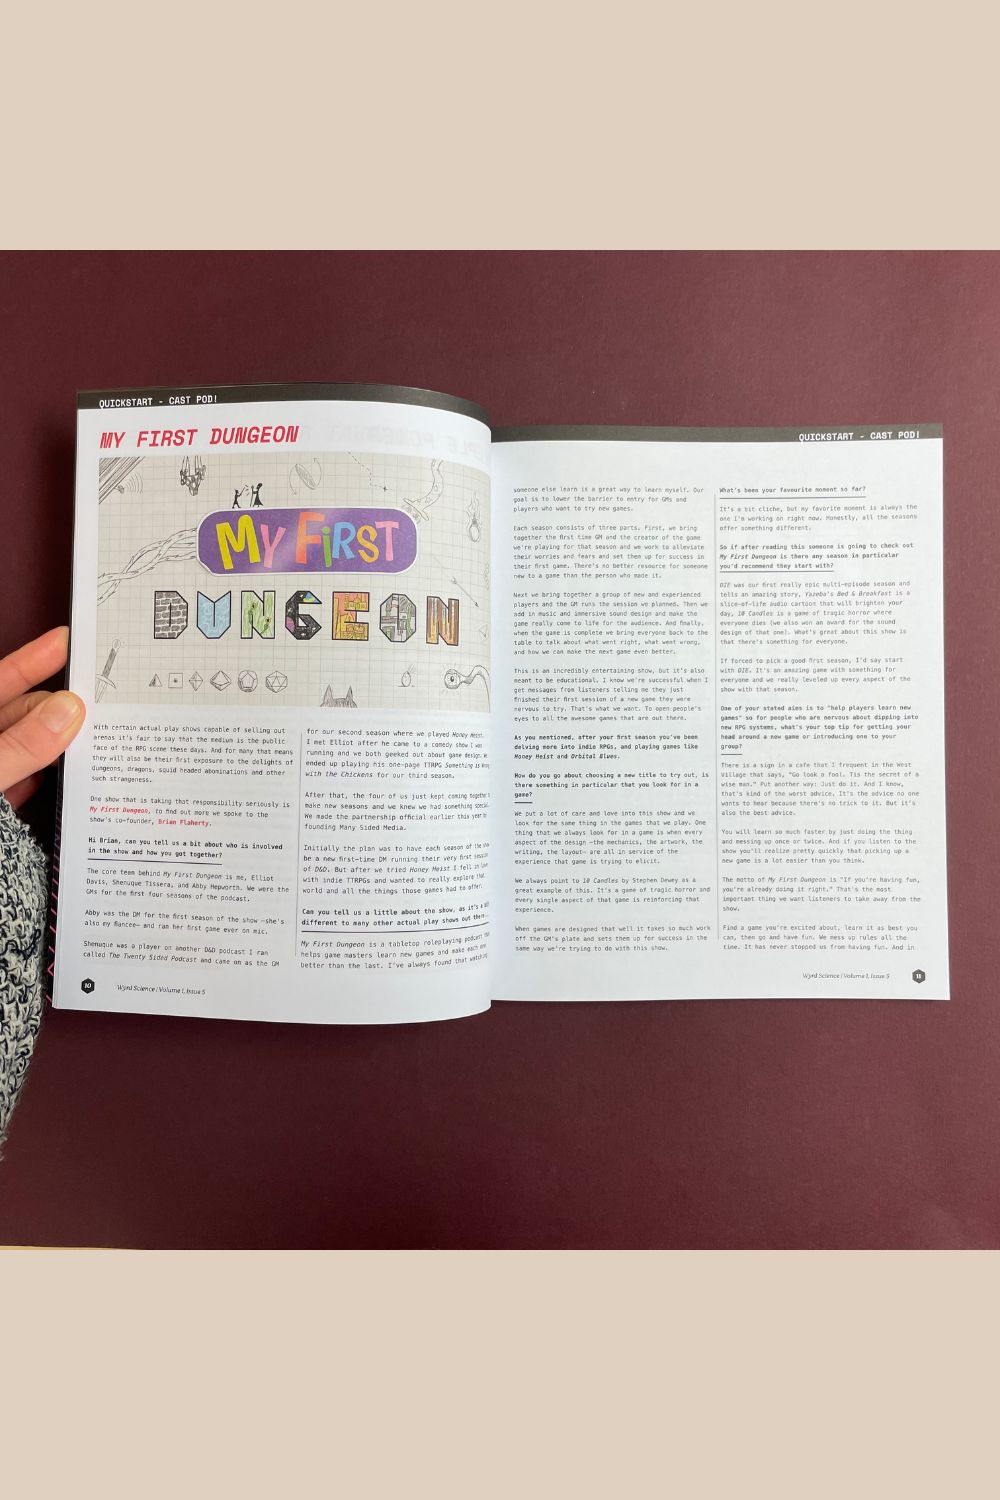 QUICKSTART - CAST POD!
MY FIRST DUNGEON
MY FIRST
DUNGEON
With certain actual play shows capable of selling out
arenas it's fair to say that the medium is the public
face of the RPG scene these days. And for many that means
they will also be their first exposure to the delights of
dungeons, dragons, squid headed abominations and other
such strangeness.
One show that is taking that responsibility seriously is
My First Dungeon, to find out more we spoke to the
show's co-founder, Brian Flaherty.
Hi Brian, can you tell us a bit about who is involved
in the show and how you got together?
The core team behind My First Dungeon is me, Elliot
Davis, Shenuque Tissera, and Abby Hepworth. We were the
GMs for the first four seasons of the podcast.
Abby was the DM for the first season of the show —she's
also my fiance— and ran her first game ever on mic.
Shenuque was a player on another D&D podcast I ran
called The Twenty Sided Podcast and came on as the GM
for our second season where we played Honey Heist.
I met Elliot after he came to a comedy show I was
running and we both geeked out about game design. We
ended up playing his one-page TTRPG Something is Wrong
with the Chickens for our third season.
After that, the four of us just kept coming together to
make new seasons and we knew we had something special.
We made the partnership official earlier this year by
founding Many Sided Media.
Initially the plan was to have each season of the show
be a new first-time DM running their very first session
of D&D. But after we tried Honey Heist I fell in love
with indie TTRPGs and wanted to really explore that
world and all the things those games had to offer.
Can you tell us a little about the show, as it's a bit
different to many other actual play shows out there
My First Dungeon is a tabletop roleplaying podcast that
helps game masters learn new games and make each one
better than the last. I've always found that watching
10
Wyrd Science | Volume 1, Issue 5
QUICKSTART - CAST POD!
someone else learn is a great way to learn myself. Our
goal is to lower the barrier to entry for GMs and
players who want to try new games.
Each season consists of three parts. First, we bring
together the first time GM and the creator of the game
we're playing for that season and we work to alleviate
their worries and fears and set them up for success in
their first game. There's no better resource for someone
new to a game than the person who made it.
Next we bring together a group of new and experienced
players and the GM runs the session we planned. Then we
add in music and immersive sound design and make the
game really come to life for the audience. And finally,
when the game is complete we bring everyone back to the
table to talk about what went right, what went wrong,
and how we can make the next game even better.
This is an incredibly entertaining show, but it's also
meant to be educational. I know we're successful when I
get messages from listeners telling me they just
finished their first session of a new game they were
nervous to try. That's what we want. To open people's
eyes to all the awesome games that are out there.
As you mentioned, after your first season you've been
delving more into indie RPGs, and playing games like
Honey Heist and Orbital Blues.
How do you go about choosing a new title to try out, is
there something in particular that you look for in a
game?
We put a lot of care and love into this show and we
look for the same thing in the games that we play. One
thing that we always look for in a game is when every
aspect of the design —the mechanics, the artwork, the
writing, the layout— are all in service of the
experience that game is trying to elicit.
We always point to 10 Candles by Stephen Dewey as a
great example of this. It's a game of tragic horror and
every single aspect of that game is reinforcing that
experience.
When games are designed that well it takes so much work
off the GM's plate and sets them up for success in the
same way we're trying to do with this show.
What's been your favourite moment so far?
It's a bit cliche, but my favorite moment is always the
one I'm working on right now. Honestly, all the seasons
offer something different.
So if after reading this someone is going to check out
My First Dungeon is there any season in particular
you'd recommend they start with?
DIE was our first really epic multi-episode season and
tells an amazing story, Yazeba's Bed & Breakfast is a
slice-of-life audio cartoon that will brighten your
day, 10 Candles is a game of tragic horror where
everyone dies (we also won an award for the sound
design of that one). What's great about this show is
that there's something for everyone.
If forced to pick a good first season, I'd say start
with DIE. It's an amazing game with something for
everyone and we really leveled up every aspect of the
show with that season.
One of your stated aims is to "help players learn new
games" so for people who are nervous about dipping into
new RPG systems, what's your top tip for getting your
head around a new game or introducing one to your
group?
There is a sign in a cafe that I frequent in the West
Village that says, "Go look a fool. Tis the secret of a
wise man." Put another way: Just do it. And I know,
that's kind of the worst advice. It's the advice no one
wants to hear because there's no trick to it. But it's
also the best advice.
You will learn so much faster by just doing the thing
and messing up once or twice. And if you listen to the
show you'll realize pretty quickly that picking up a
new game is a lot easier than you think.
The motto of My First Dungeon is "If you're having fun,
you're already doing it right." That's the most
important thing we want listeners to take away from the
show.
Find a game you're excited about, learn it as best you
can, then go and have fun. We mess up rules all the
time. It has never stopped us from having fun. And in
Wyrd Science | Volume 1, Issue 5
11